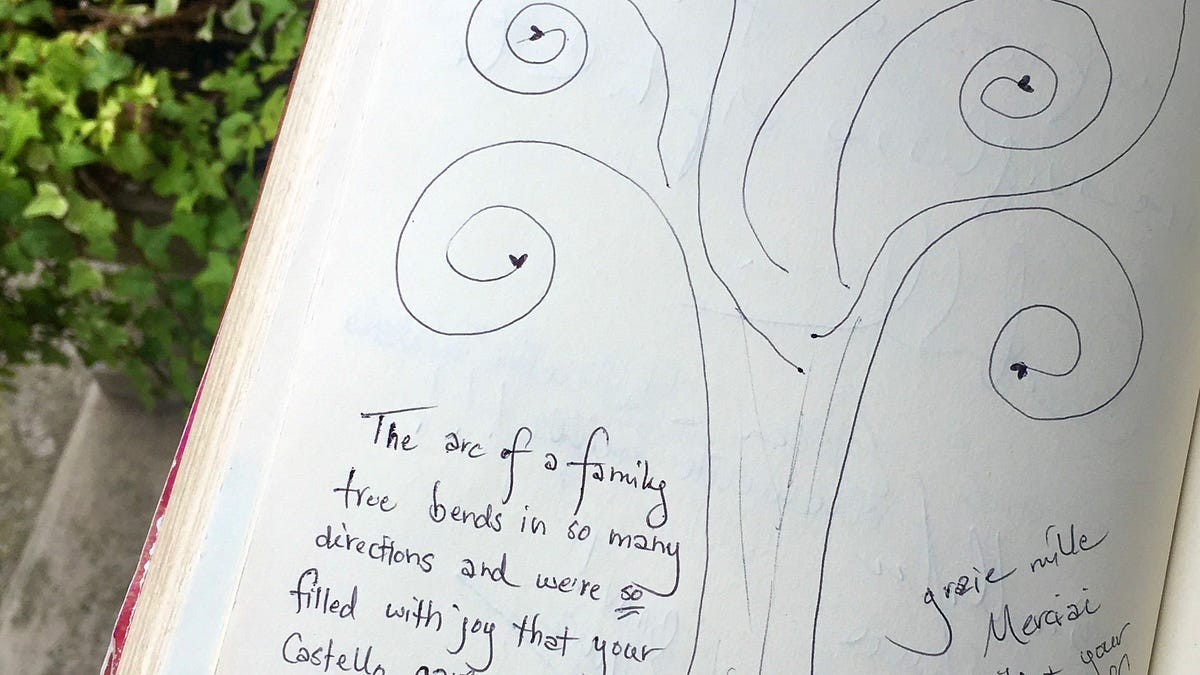 The arc of a family
tree bends in so many
directions and we're so
filled with joy that your
Castello
grazie mille
Merciai
your